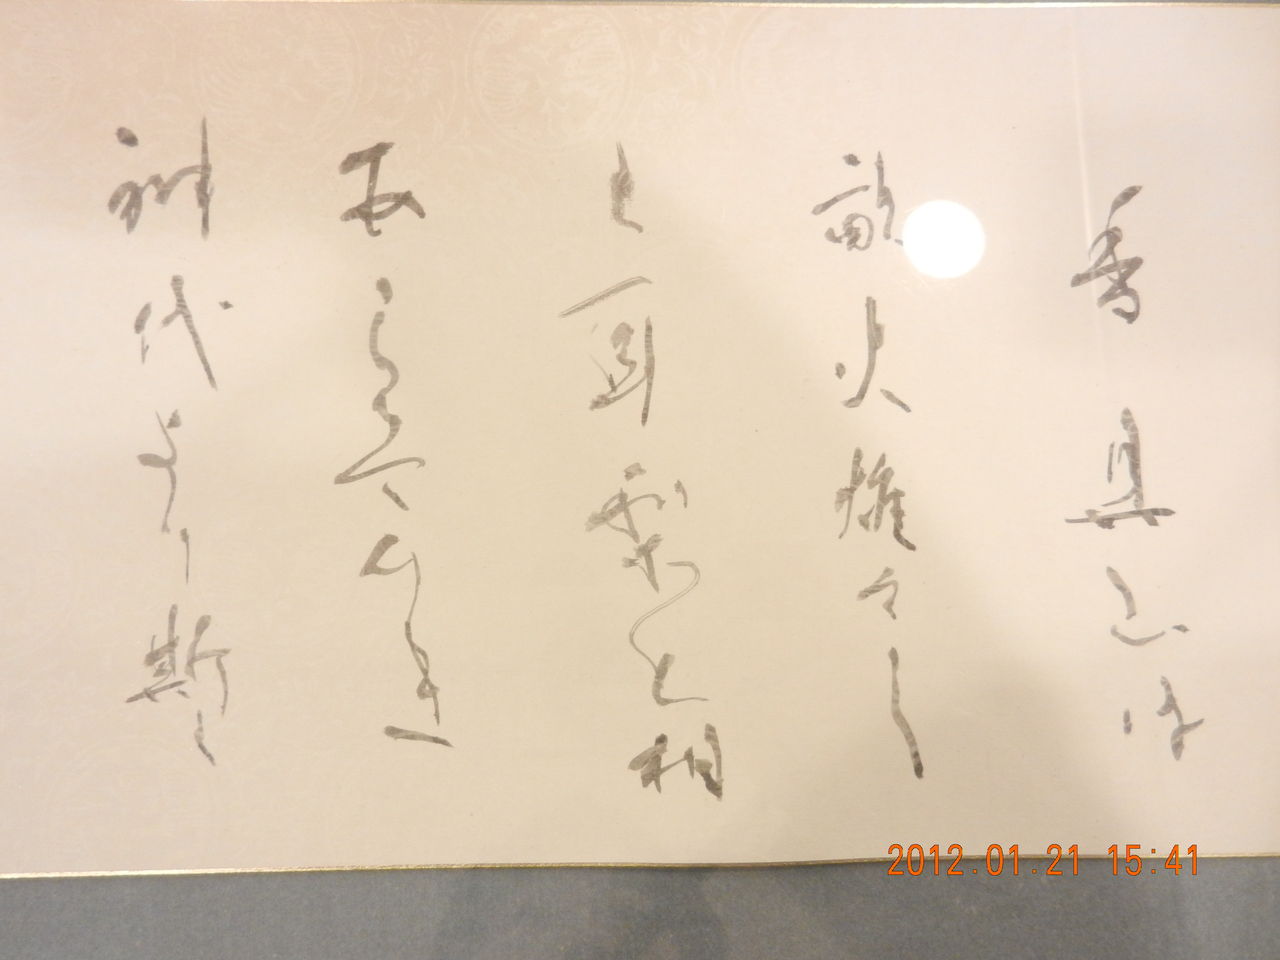 香具山は
畝火雄々し
と耳梨と相
あらそひき
神代より斯く
2012.01.21 15:41